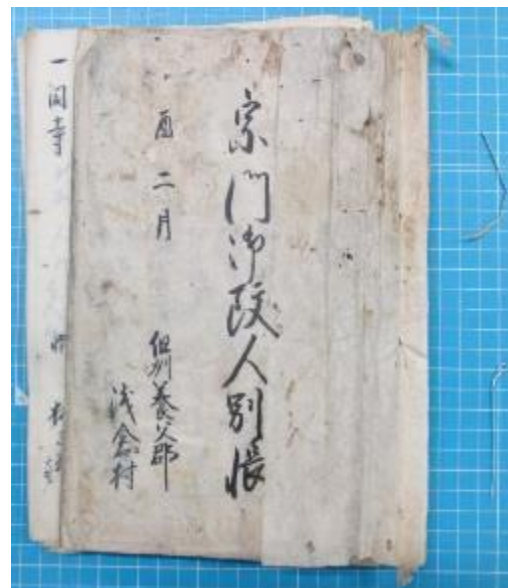 宗門御改人別帳
酉二月
但州養父郡
浅倉村
一同寺